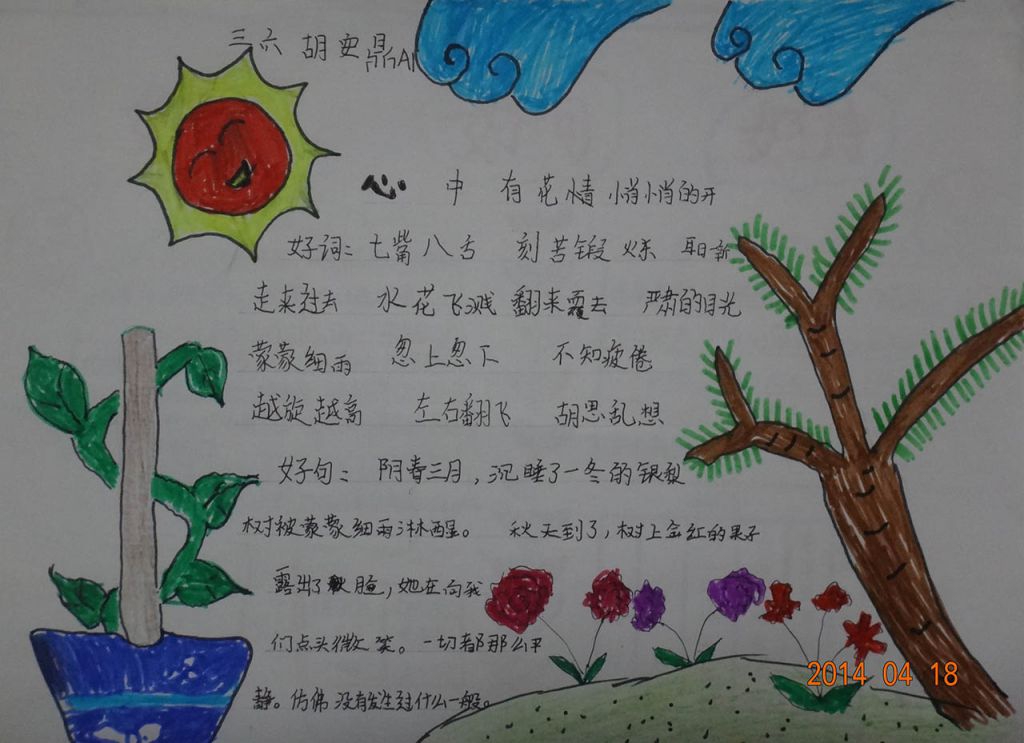 三六 胡安鼎
心中有花情 悄悄的开
好词：七嘴八舌 刻苦锻炼
走来过去 水花飞溅 翻来覆去 严肃的目光
蒙蒙细雨 忽上忽下 不知疲倦
越旋越高 左右翻飞 胡思乱想
好句：阴春三月，沉睡了一冬的银梨
树被蒙蒙细雨淋醒。 秋天到了，树上金红的果子
露出了脸，她在向我
们点头微笑。一切都那么平
静。仿佛没有发生过什么一般。
2014 04 18